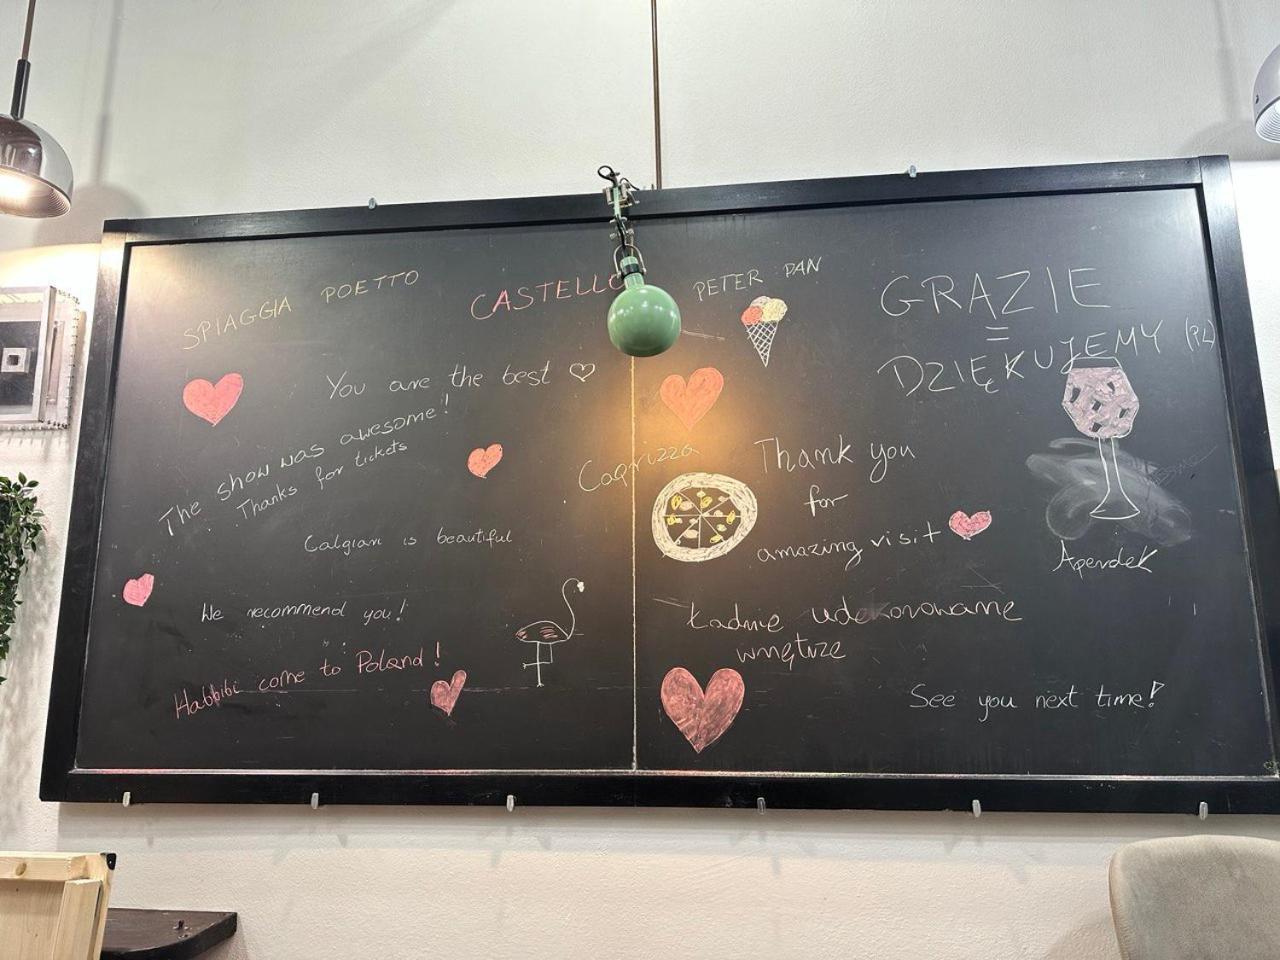 SPIAGGIA POETTO
CASTELLO
PETER PAN
GRAZIE
=
DZIĘKUJEMY (PL)
You are the best ♡
The show was awesome!
Thanks for tickets
Calgiari is beautiful
We recommend you!
Habbibi come to Poland!
Caprizza
Thank you
for
amazing visit
Aperdek
Ładnie udekorowane
wnętrze
See you next time!